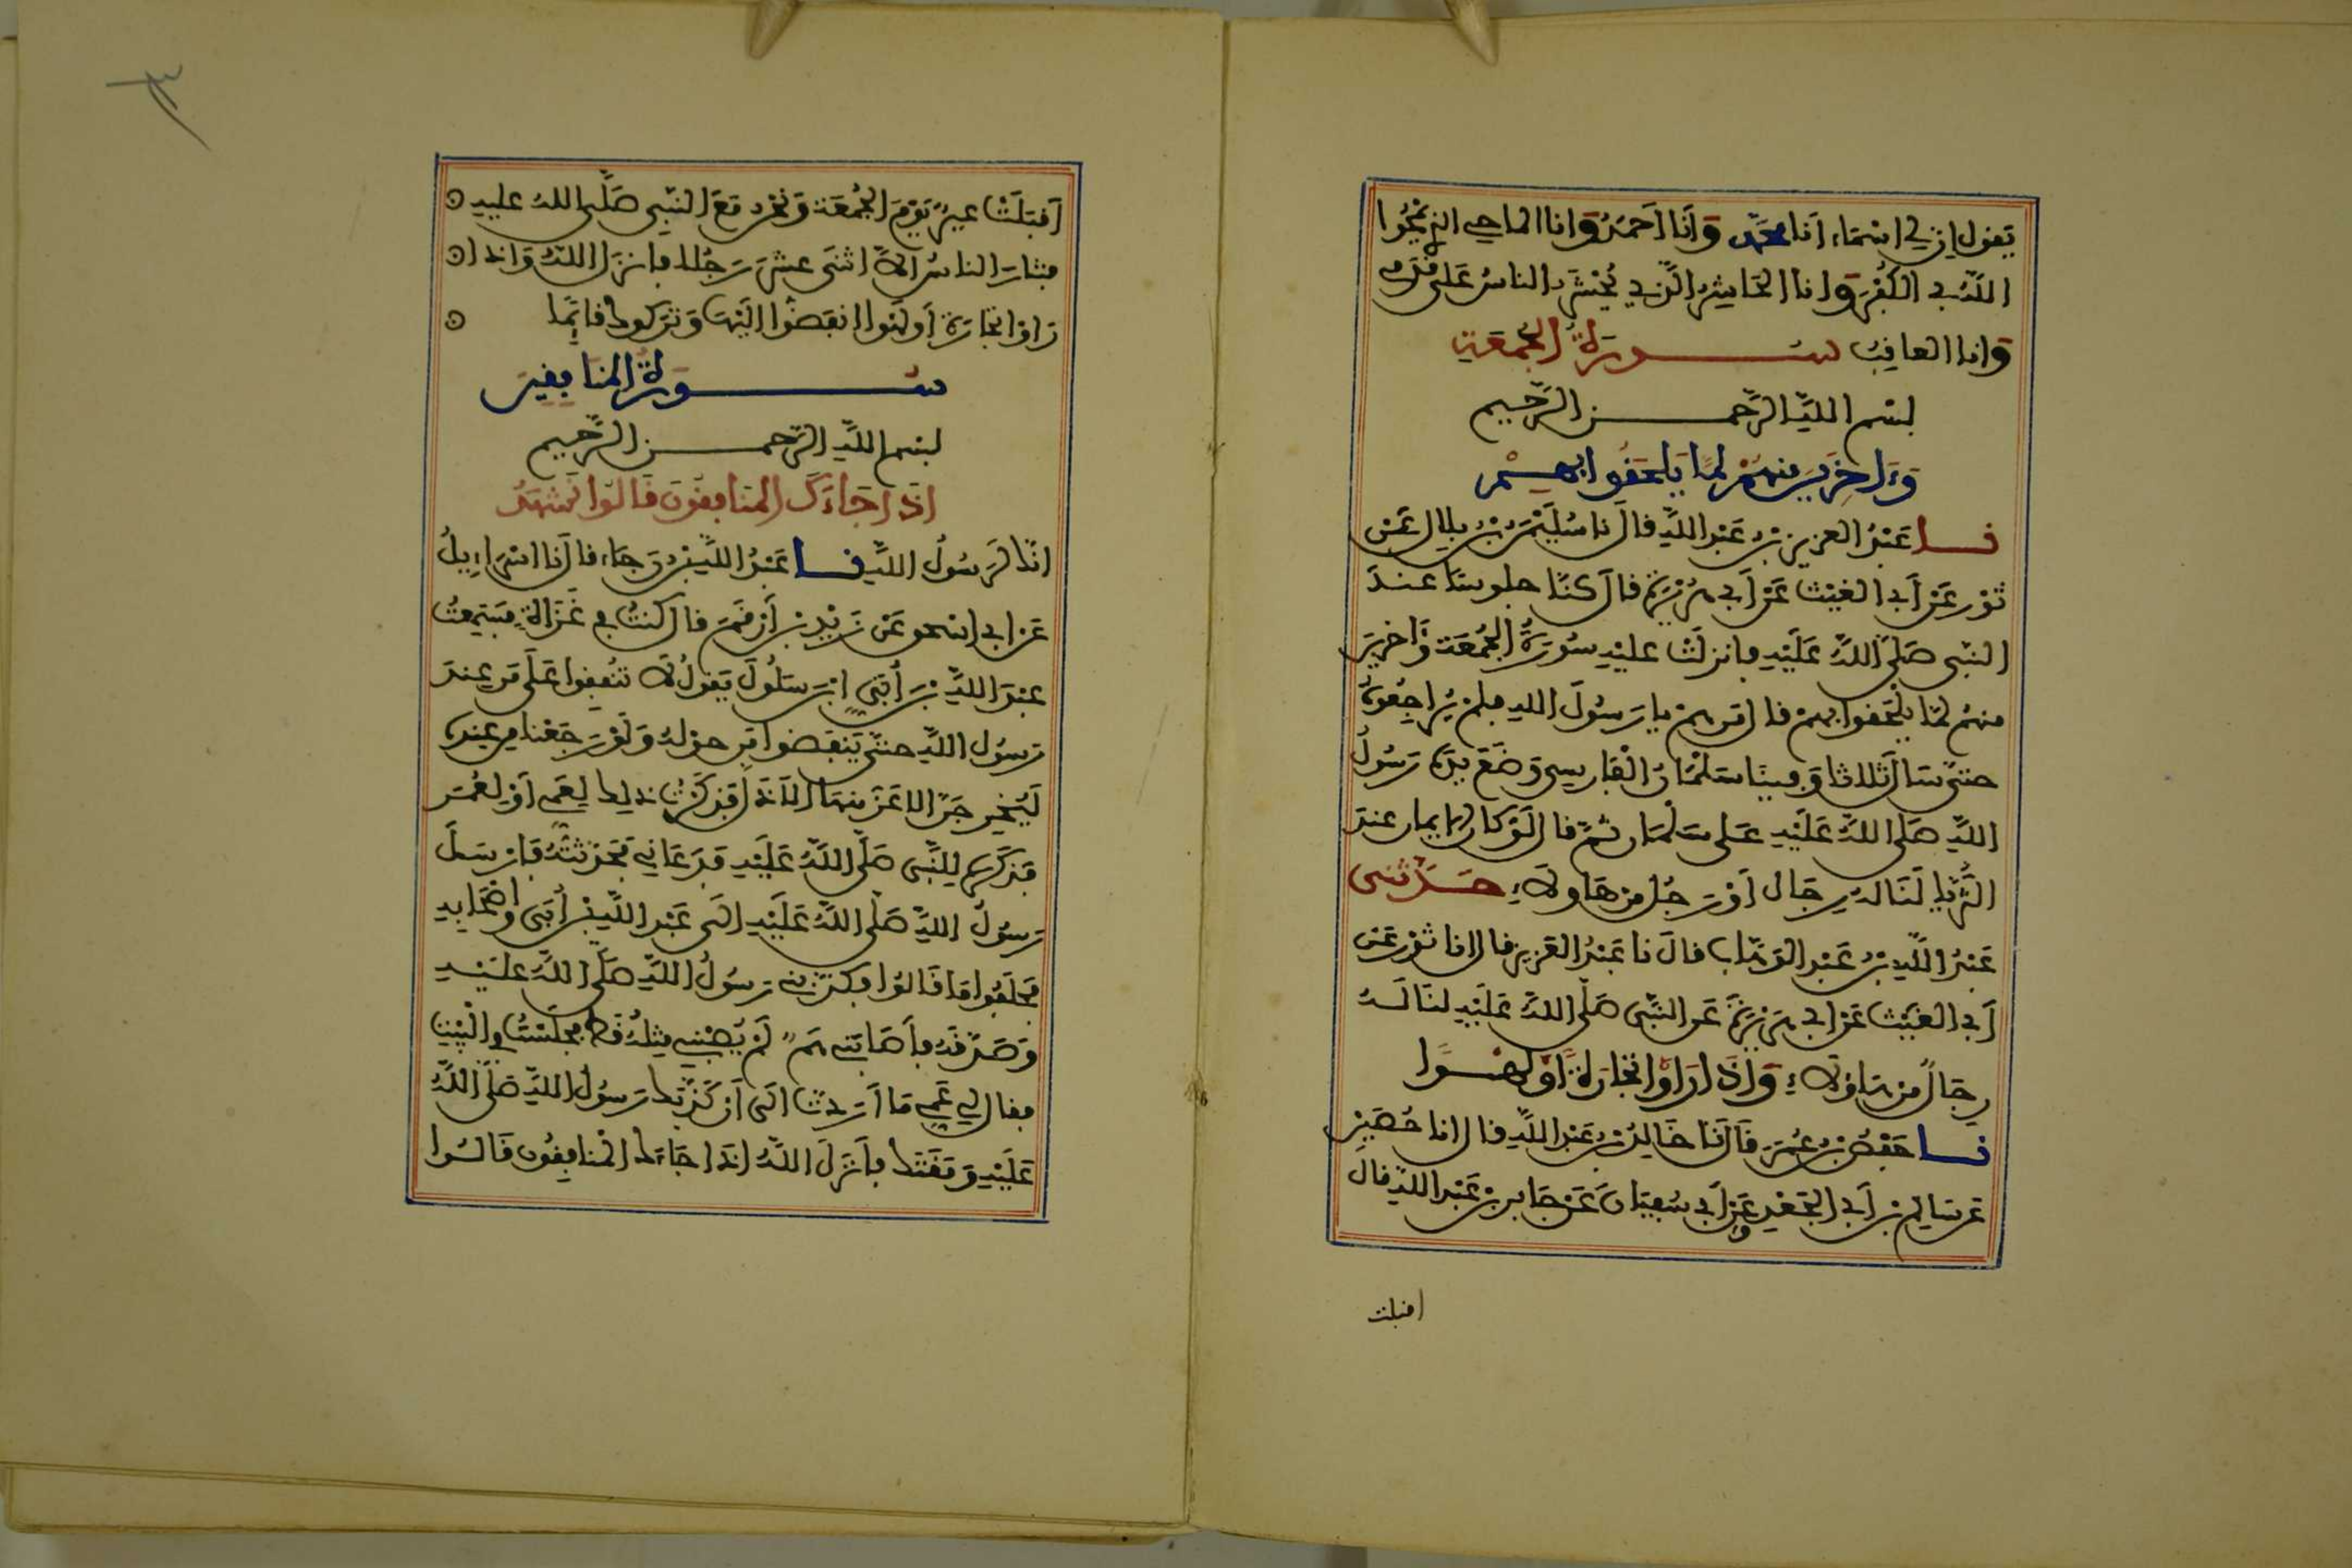 يقول إن لي اسماء أنا محمد وأنا أحمد وانا الماحي الذي يمحوا
الله بي الكفر وانا الحاشر الذي يحشر الناس على قدمي
وانا العاقب سورة الجمعة
بسم الله الرحمن الرحيم
وءاخرين منهم لما يلحقوا بهم
نا عبد العزيز بن عبد الله قال نا سليمن بن بلال عن
ثور عن أبي الغيث عن أبي هريرة قال كنا جلوسا عند
النبي صلى الله عليه فانزلت عليه سورة الجمعة وءاخرين
منهم لما يلحقوا بهم قال من هم يا رسول الله فلم يراجعوه
حتى سال ثلاثا وفينا سلمان الفارسي وضع يده رسول
الله صلى الله عليه على سلمان ثم قال لو كان الايمان عند
الثريا لناله رجال أو رجل من هاولاء حدثني
عبد الله بن عبد الوهاب قال نا عبد العزيز قال انا ثور عن
أبي الغيث عن ابي هريرة عن النبي صلى الله عليه لناله
رجال من هاؤلاء وإذا رأوا تجارة أو لهوا
نا حفص بن عمر قال نا خالد بن عبد الله قال انا حصين
عن سالم بن أبي الجعد وعن أبي سفيان عن جابر بن عبد الله قال
اقبلت
أقبلت عير يوم الجمعة ونحن مع النبي صلى الله عليه
فثار الناس الا اثنى عشر رجلا فانزل الله واذا
راوا تجارة أو لهوا انفضوا اليها وتركوك قائما
سورة المنافقين
بسم الله الرحمن الرحيم
اذا جاءك المنافقون قالوا نشهد
انك لرسول الله نا عبد الله بن رجاء قال نا اسراءيل
عن ابي اسحق عن زيد بن أرقم قال كنت في غزاة فسمعت
عبد الله بن أبي ابن سلول يقول لا تنفقوا على من عند
رسول الله حتى ينفضوا من حوله ولو رجعنا من عنده
ليخرجن الاعز منها الاذل فذكرت ذلك لعمي أو لعمر
فذكره للنبي صلى الله عليه فدعاني فحدثته فارسل
رسول الله صلى الله عليه الى عبد الله بن أبي واصحابه
فحلفوا ما قالوا فكذبني رسول الله صلى الله عليه
وصدقه فأصابني هم لم يصبني مثله قط فجلست في البيت
فقال لي عمي ما أردت الى أن كذبك رسول الله صلى الله
عليه ومقتك فأنزل الله اذا جاءك المنافقون قالوا